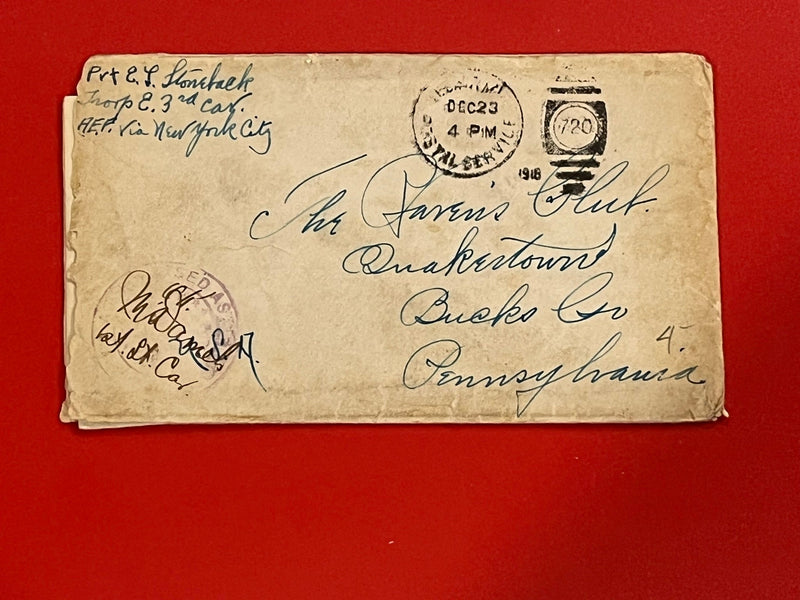 Pvt E. L. Stoneback
Troop E. 3rd Cav.
A.E.F. via New York City
DEC 23
4 PM
POSTAL SERVICE
1918
720
The Raven's Club.
Quakertown
Bucks Co
Pennsylvania
4-
OK
1st. Lt. Cav.